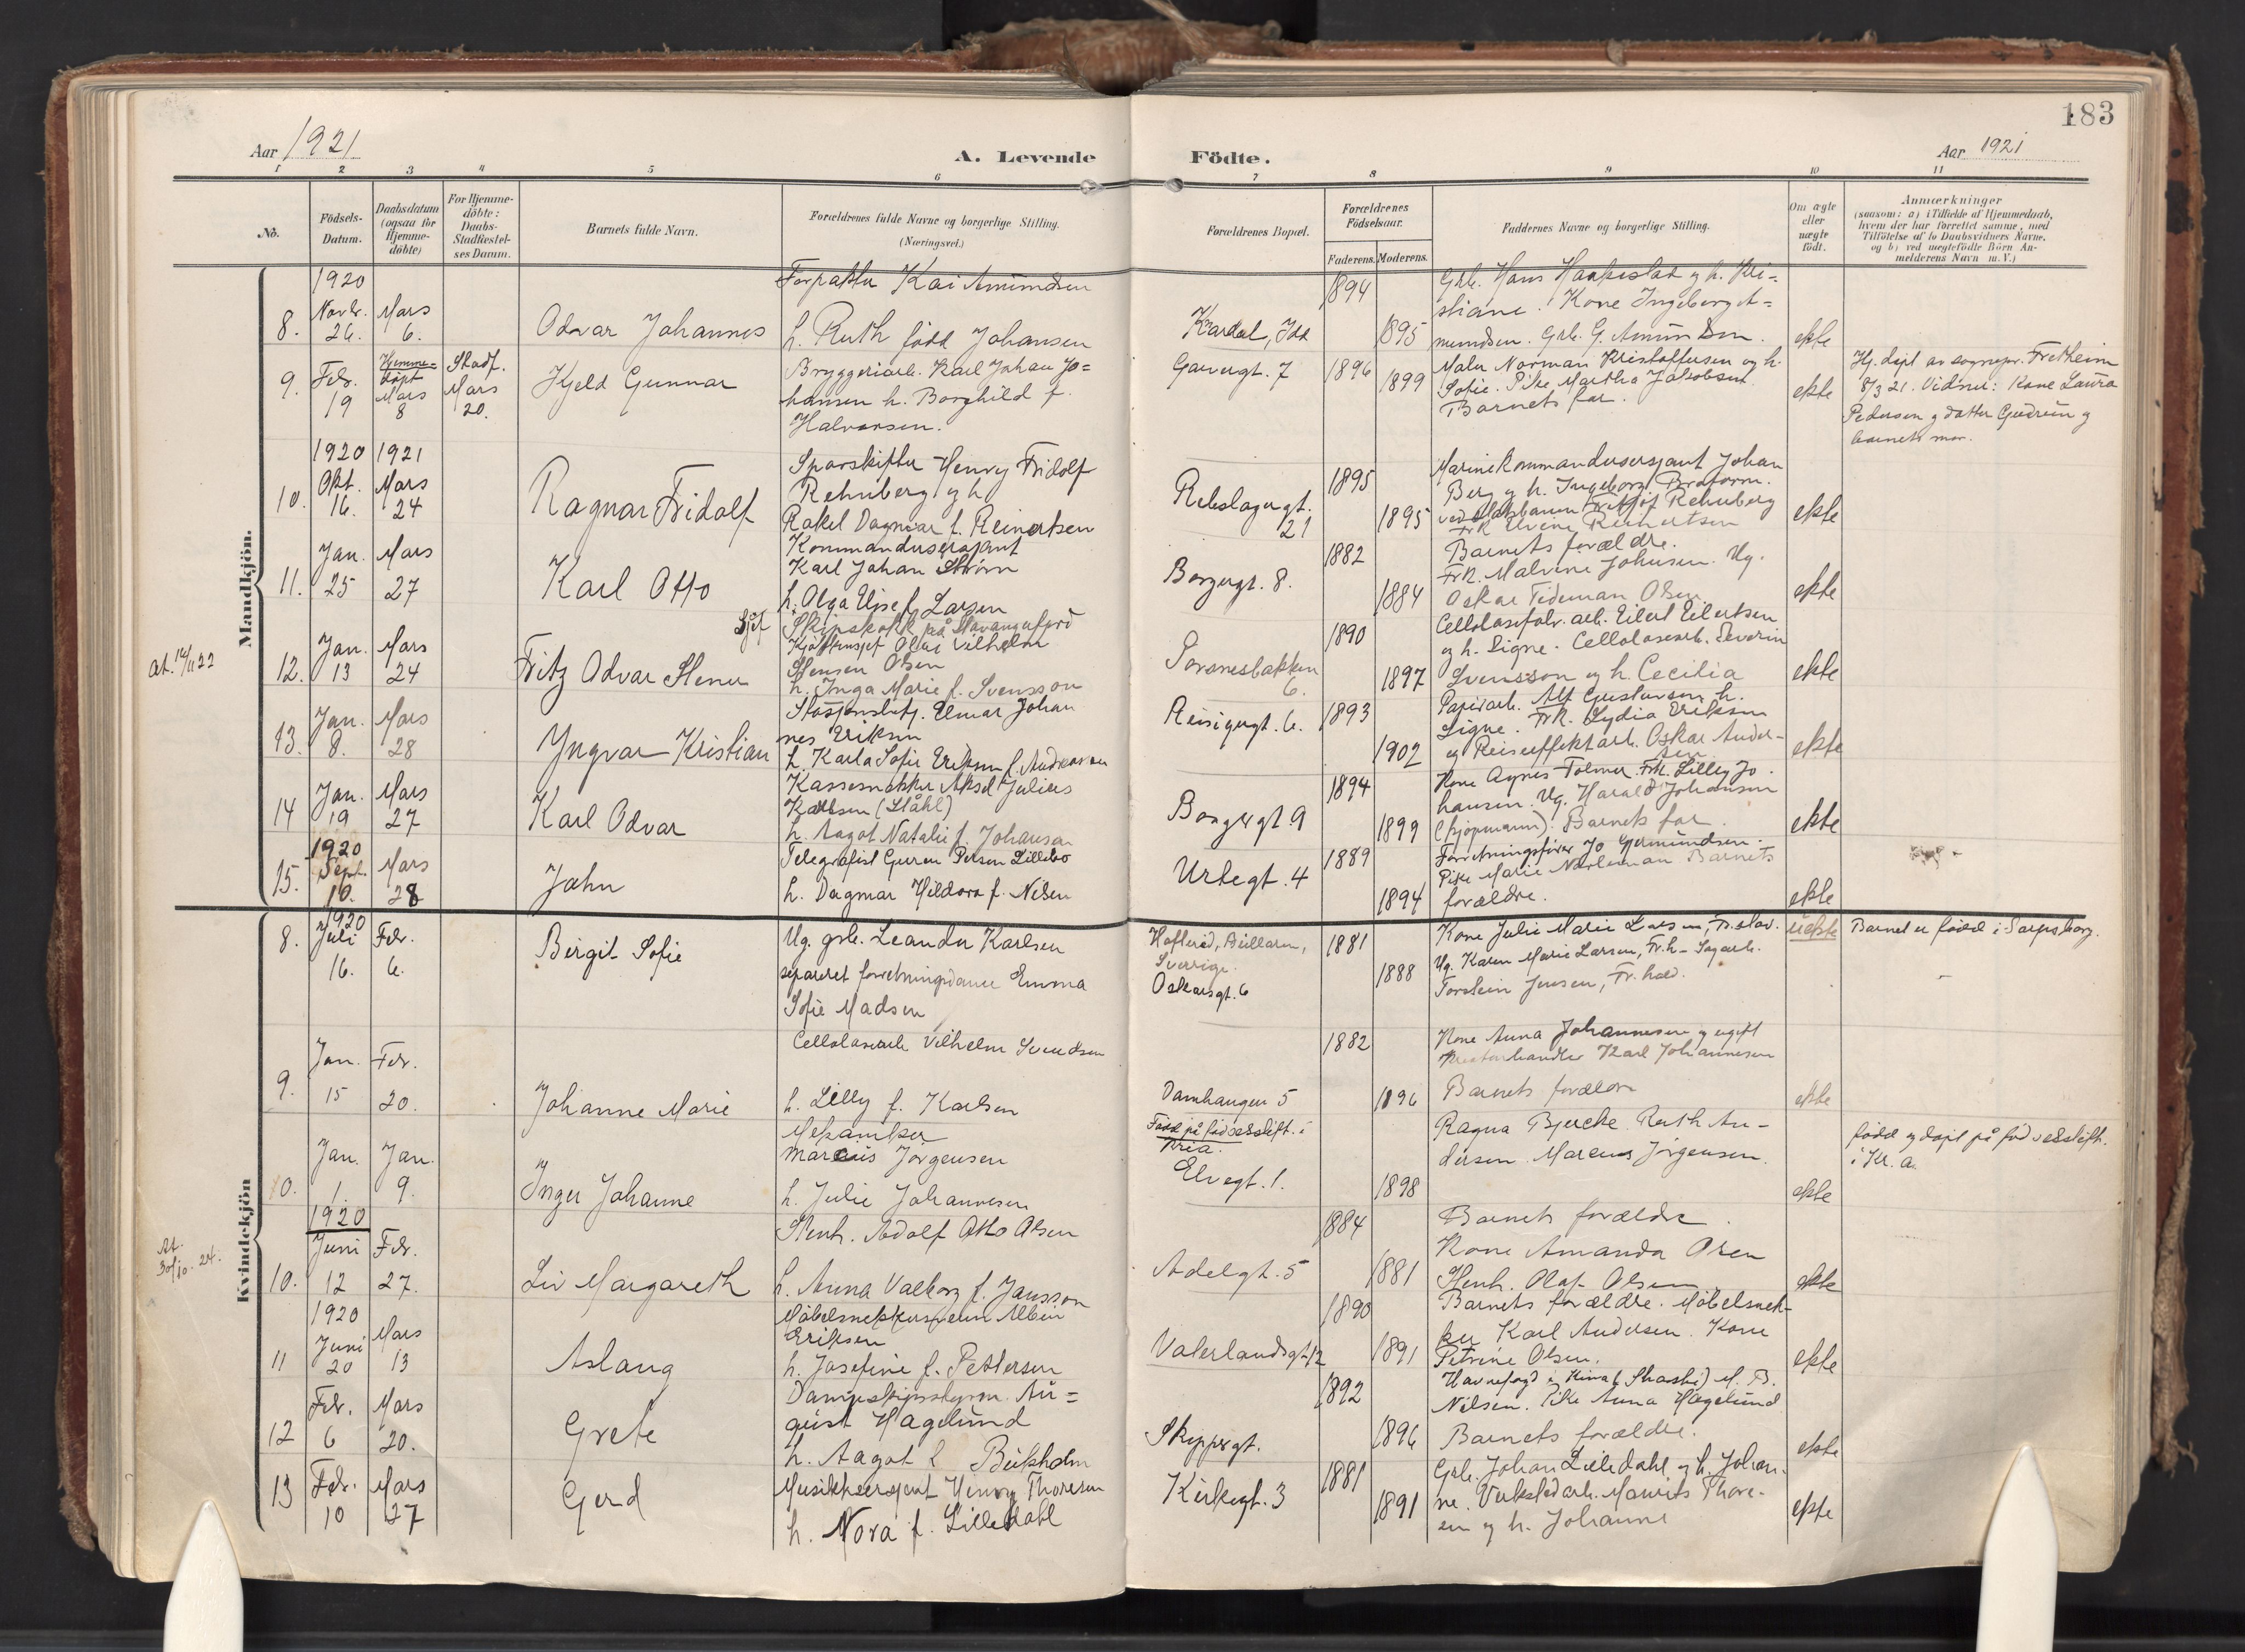 183
Aar 1921
A. Levende Födte.
Aar 1921
1 2 3 4 5 6 7 8 9 10 11
No.
Födsels-Datum.
Daabsdatum (ogsaa for Hjemme-döbte)
For Hjemme-döbte: Daabs-Stadfæstel-ses Datum.
Barnets fulde Navn.
Forældrenes fulde Navne og borgerlige Stilling.
(Næringsvei.)
Forældrenes Bopæl.
Forældrenes Födselsaar.
Faderens. Moderens.
Faddernes Navne og borgerlige Stilling.
Om ægte eller uægte födt.
Anmærkninger
(saasom: a) i Tilfælde af Hjemmedaab,
hvem der har forrettet samme, med
Tilföielse af to Daabsvidners Navne,
og b) ved uægtefödte Börn An-
melderens Navn m. V.)
Mandkjön.
8.
1920
Novbr.
26.
Mars
6.
Odvar Johannes
Forpakter Kai Amundsen
h. Ruth född Johansen
Kardal, Idd
1894
1895
Grb. Hans Haakestad og h. Kri-
stiane. Kone Ingeborg A-
mundsen. Grb. G. Amundsen.
ekte
9.
Febr.
19
Hjemme-
døpt
Mars
8
Stadf.
Mars
20.
Kjeld Gunnar
Bryggeriarb. Karl Johan Jo-
hansen h. Borghild f.
Halvorsen.
Garvergt. 7
1896
1899
Maler Norman Kristoffersen og h.
Sofie. Pike Martha Jakobsen
Barnets far.
ekte
Hj. døpt av sognepr. Fretheim
8/3 21. Vidner: Kone Laura
Pedersen og datter Gudrun og
barnets mor.
10.
1920
Okt.
16.
1921
Mars
24
Ragnar Fridolf
Sporskifter Henry Fridolf
Rehnberg og h
Rakel Dagmar f. Reinertsen
Rebslagergt.
21
1895
1895
Marinekommandersersjant Johan
Berg og h. Ingeborg
Fritjof Rehnberg
ekte
11.
Jan.
25
Mars
27
Karl Otto
Kommandersersjant
Karl Johan Strøm
h. Olga Elise f. Larsen
Borgergt. 8.
1882
1884
Barnets forældre.
Frk. Malvine Johnsen. Ug.
Oskar Tideman Olsen
ekte
At. 14/11 22
12.
Jan.
13
Mars
24
Fritz Odvar Stener
Skipskokk på Stavangerfjord
Olaf Vilhelm
Stensen Olsen
h. Inga Marie f. Svensson
Porsnesbakken
6.
1890
1897
Cellulosefabr. arb. Eilert Eilertsen
og h. Signe. Cellulosearb. Severin
Svensson og h. Cecilia
ekte
13.
Jan.
8.
Mars
28
Yngvar Kristian
Stasjonsbetj. Elmar Johan
nes Eriksen
h. Karla Sofie Eriksen f. Andreassen
Reisigergt. 6.
1893
1902
Papirarb. Alf Gustavsen h.
Signe. Frk. Lydia Eriksen
og Reiseeffektarb. Oskar Ander-
sen
ekte
14
Jan.
19
Mars
27
Karl Odvar
Kassesnekker Aksel Julius
Karlsen (Ståhl)
h. Aagot Natalie f. Johansen
Borgergt. 9
1894
1899
Kone Agnes Folmer. Frk. Lilly Jo-
hansen. Ug. Harald Johansen
(kjøpmann). Barnets far.
ekte
15.
1920
Sept.
10.
Mars
28
John
Telegrafist Persen Lillebo
h. Dagmar Hildora f. Nilsen
Urtegt. 4
1889
1894
Forretningsfører Jo Gjermundsen.
Pike Marie Barnets
forældre.
ekte
Kvindekjön
8.
1920
Juli
16.
Febr.
6.
Birgit Sofie
Ug. grb. Leander Karlsen
separert forretningsdame Emma
Sofie Madsen
Sverrige.
Oskarsgt. 6
1881
1888
Kone Julie Marie Larsen, Fr.stad.
Ug. Karen Marie Larsen, Fr.h-. Sagarb.
Torstein Jensen, Fr.hald.
uekte
Barnet er född i Sarpsborg.
9.
Jan.
15
Febr.
20.
Johanne Marie
Cellulosearb. Vilhelm Svendsen
h. Lilly f. Karlsen
Damhaugen 5
1882
1896
Kone Anna Johannesen og ugift
Karl Johannesen
Barnets forældre
ekte
10.
Jan.
1.
Jan.
9.
Inger Johanne
Mekaniker
Marcus Jørgensen
h. Julie Johannesen
Född på fødselsstift. i
Kria.
Elvegt. 1.
1898
Ragna Bjercke. Ruth An-
dersen. Marcus Jørgensen.
ekte
född og døpt på fødselsstift.
i Kr. a.
At.
30/10. 24.
10.
1920
Juni
12
Febr.
27.
Liv Margareth
Stenh. Adolf Otto Olsen
h. Anna Valborg f. Jansson
Adelgt. 5
1884
1881
Barnets forældre.
Kone Amanda Olsen
Stenh. Olaf Olsen
ekte
11
1920
Juni
20
Mars
13
Aslaug
Møbelsnekkersvenn Albin
Eriksen
h. Josefine f. Pettersen
Vaterlandsgt. 12
1890
1891
Barnets forældre. Møbelsnek-
ker Karl Andersen. Kone
Petrine Olsen.
ekte
12
Febr.
6
Mars
20.
Grete
Dampskipsstyrm. Au-
gust Hagelund
h. Aagot f. Bükholm
Skippergt.
1892
1896
Havnefogd i Kina M. B.
Nilsen. Pike Anna Hagelund
Barnets forældre.
ekte
13
Febr.
10
Mars
27
Gerd
Musikksersjant Henry Thoresen
h. Nora f. Lilledahl
Kirkegt. 3
1881
1891
Grb. Johan Lilledahl og h. Johan-
ne. Verkstedarb. Maurits Thore-
sen og h. Johanne
ekte